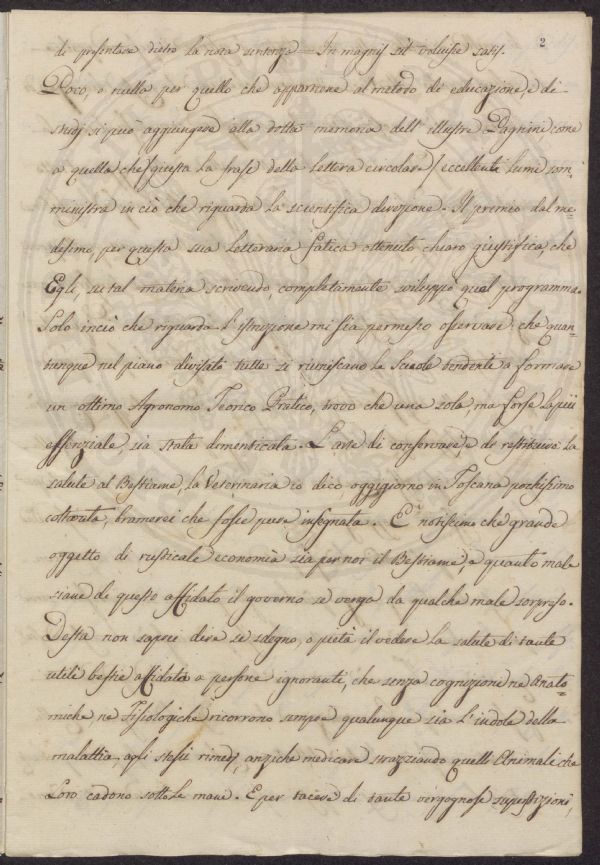 2
di presentare dietro la nota sentenza = In magnis sit voluisse satis.
Poco, o nulla per quello che appartiene al metodo di educazione, e di
studj si può aggiungere alla dotta memoria dell' illustre Pagnini come
a quella che (giusta la frase della Lettera circolare) eccellenti lumi som-
ministra in ciò che riguarda la scientifica direzione. Il premio dal me
desimo, per questa sua Letteraria fatica ottenuto chiaro giustifica, che
Egli, su tal materia scrivendo, completamente sviluppò quel programma.
Solo in ciò che riguarda l'istruzione mi sia permesso osservare, che quan-
tunque nel piano divisato tutte si riuniscano le Scuole tendenti a formare
un ottimo Agronomo Teorico Pratico, trovo che una sola, ma forse la più
essenziale, sia stata dimenticata. L'arte di conservare, e di restituire la
salute al Bestiame, la Veterinaria io dico, oggigiorno in Toscana pochissimo
coltivata, bramerei che fosse pure insegnata. E' notissimo che grande
oggetto di rusticale economia sia per noi il Bestiame, e quanto male
siane di questo affidato il governo se venga da qualche male sorpreso.
Desta non saprei dire se sdegno, o pietà il vedere la salute di tante
utili bestie affidata a persone ignoranti, che senza cognizioni ne Anato-
miche ne Fisiologiche ricorrono sempre qualunque sia l'indole della
malattia, agli stessi rimedj, anziche medicare strazziando quelli Animali che
Loro cadono sotto le mani. E per tacere di tante vergognose superstizioni,